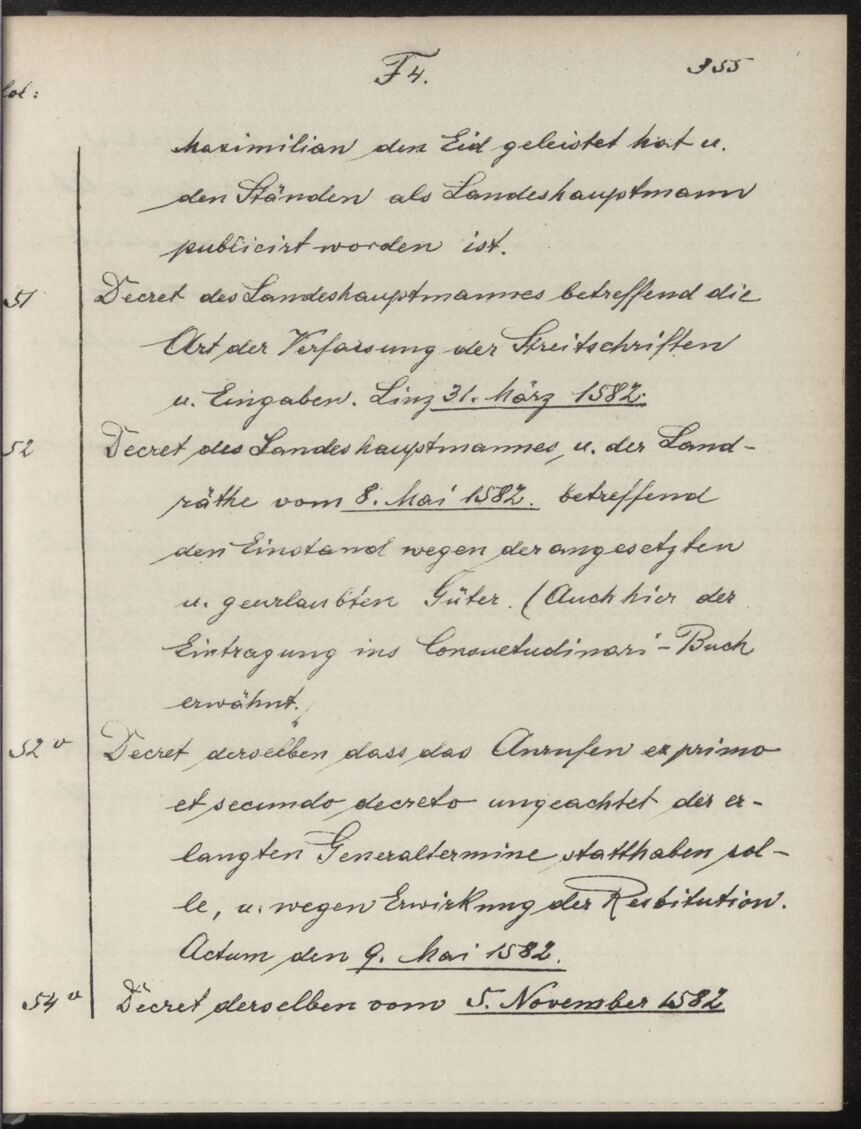 F 4.
355
fol:
Maximilian den Eid geleistet hat u.
den Ständen als Landeshauptmann
publicirt worden ist.
51 Decret des Landeshauptmannes betreffend die
Art der Verfassung der Streitschriften
u. Eingaben. Linz 31. März 1582.
52 Decret des Landeshauptmannes, u. der Land-
räthe vom 8. Mai 1582. betreffend
den Einstand wegen der angesetzten
u. geurlaubten Güter. (Auch hier der
Eintragung ins Consuetudinari-Buch
erwähnt.
52v Decret derselben dass das Anrufen ex primo
et secundo decreto ungeachtet der er-
langten Generaltermine statthaben sol-
le, u. wegen Erwirkung der Restitution.
Actum den 9. Mai 1582.
54v Decret derselben vom 5. November 1582